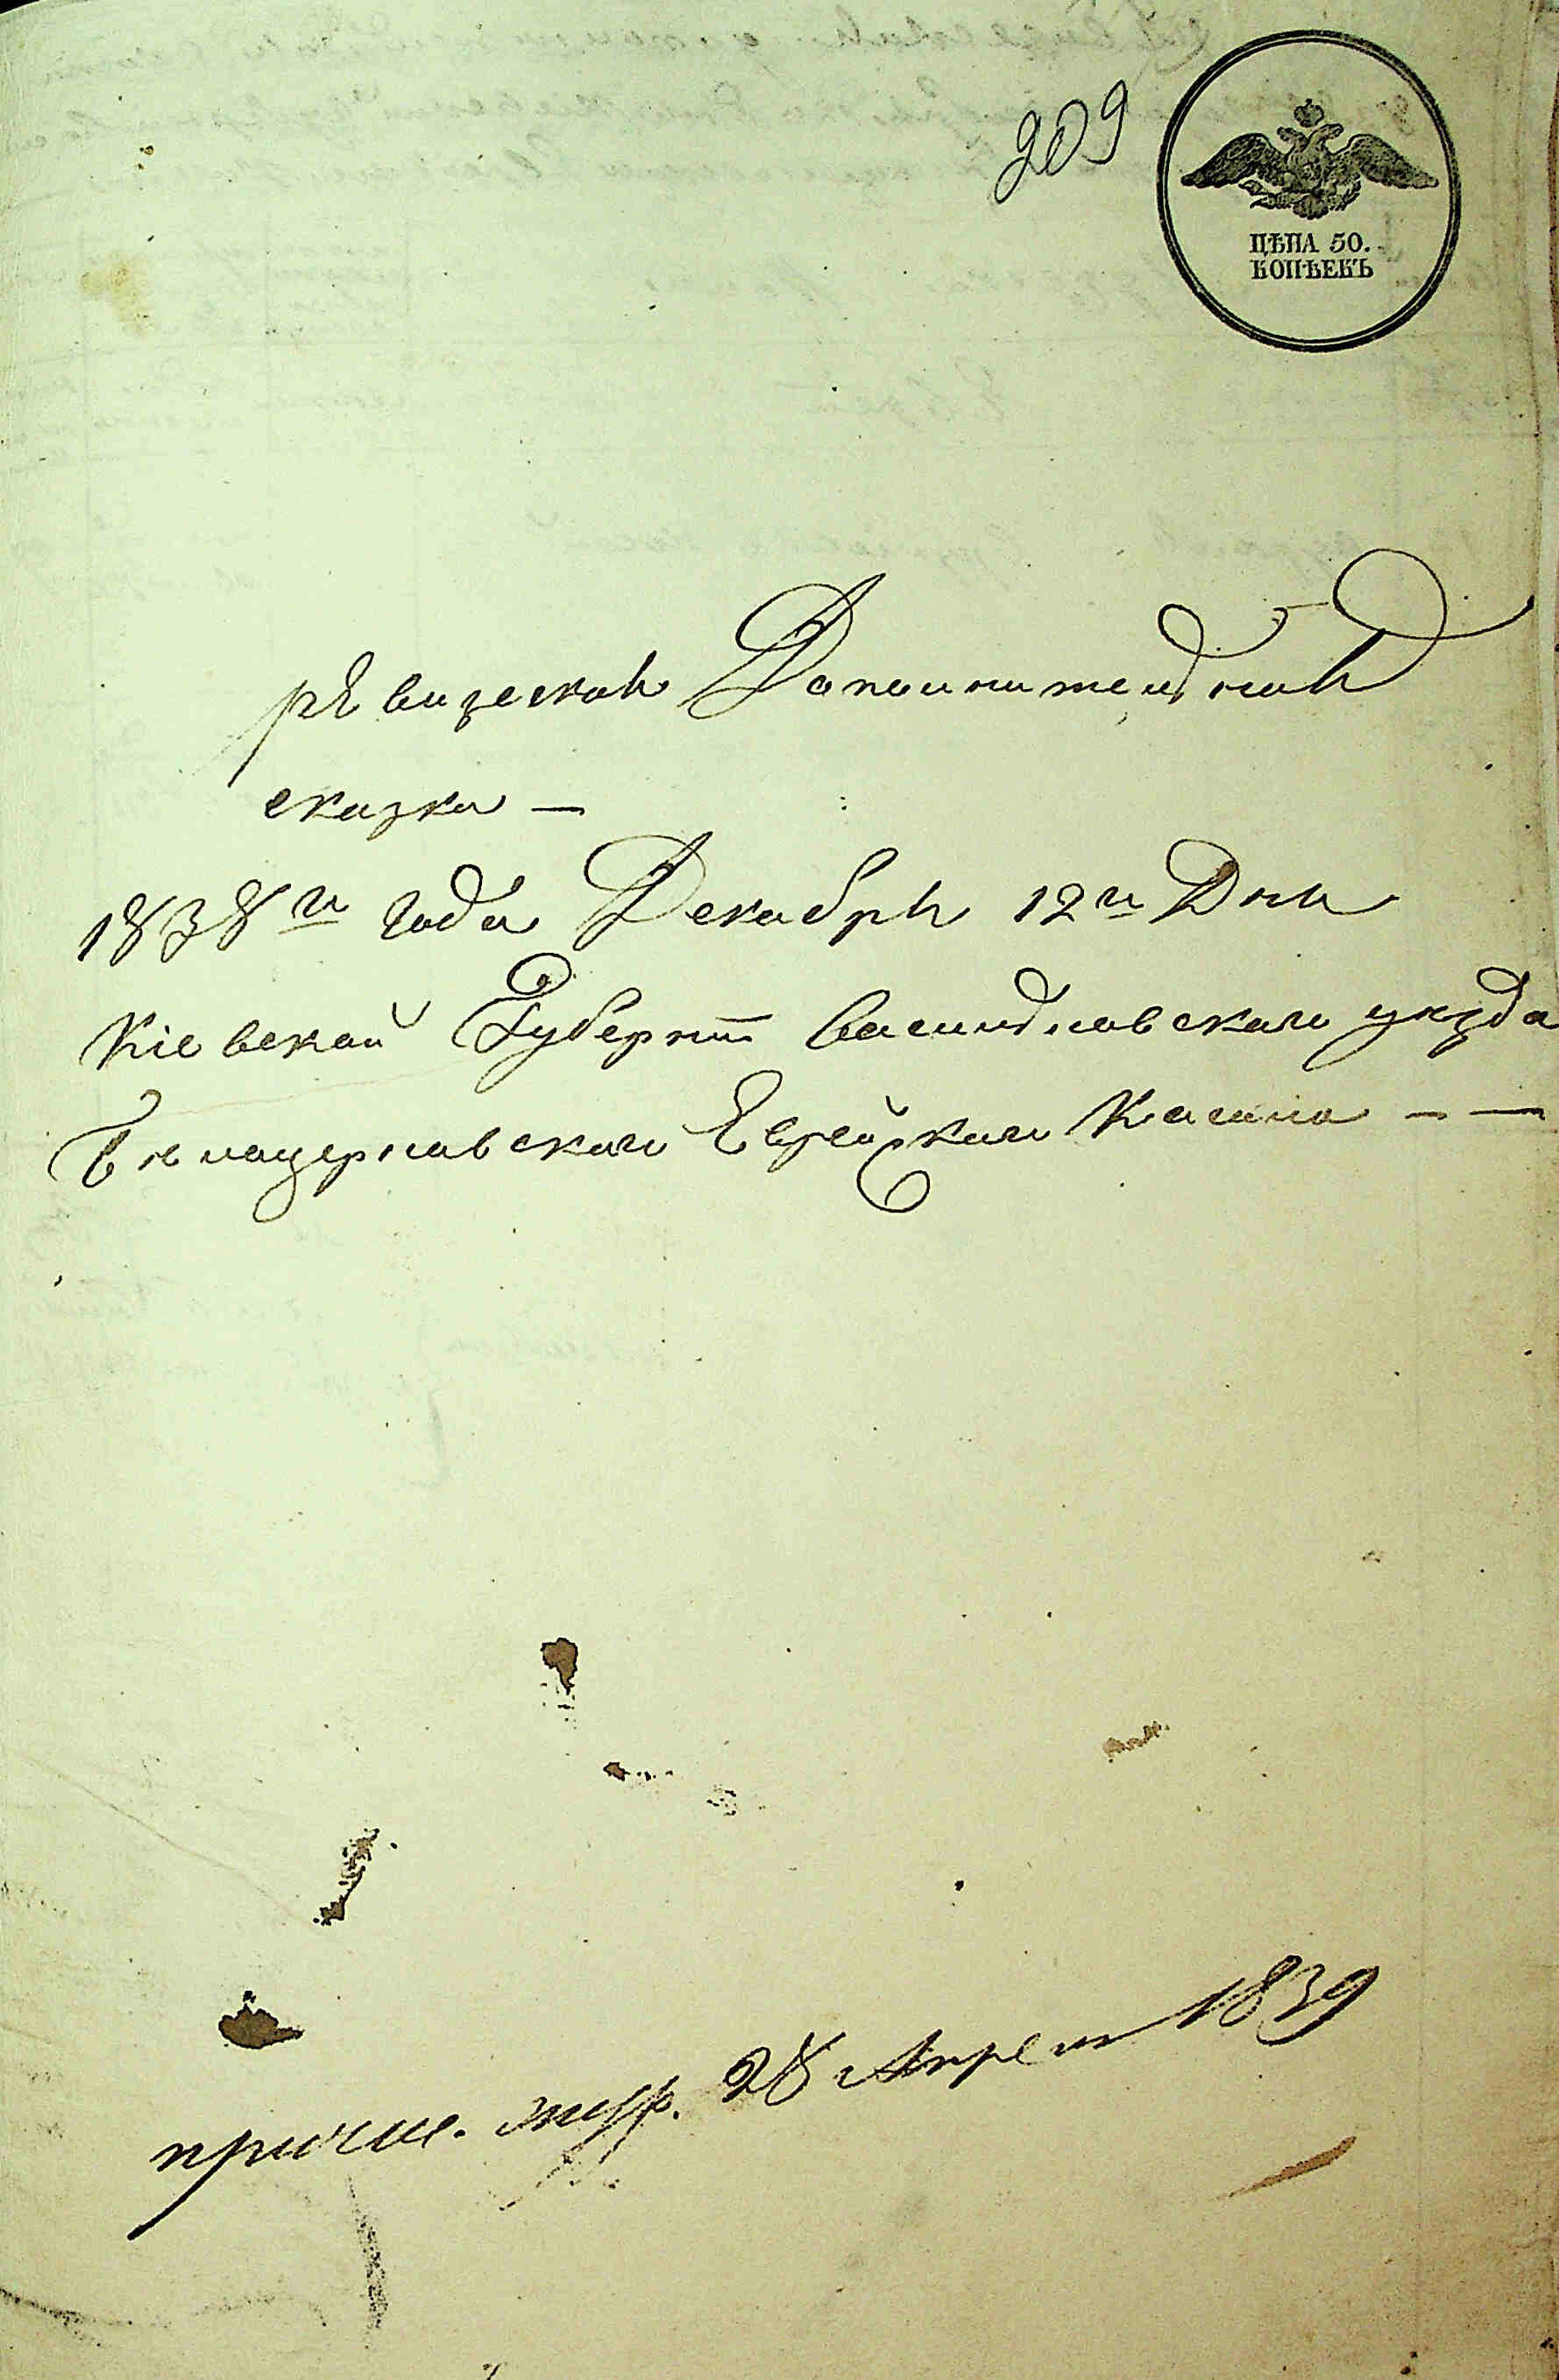 209
ЦѢНА 50.
КОПѢЕКЪ
рѣвизская Дополнительная
сказка —
1838го Года Декабря 12го Дня
Кіевской Губерніи Васильковскаго уѣзда
Бѣлацерковскаго Еврейскаго Кагала — —
причис. жур. 28 Апреля 1839